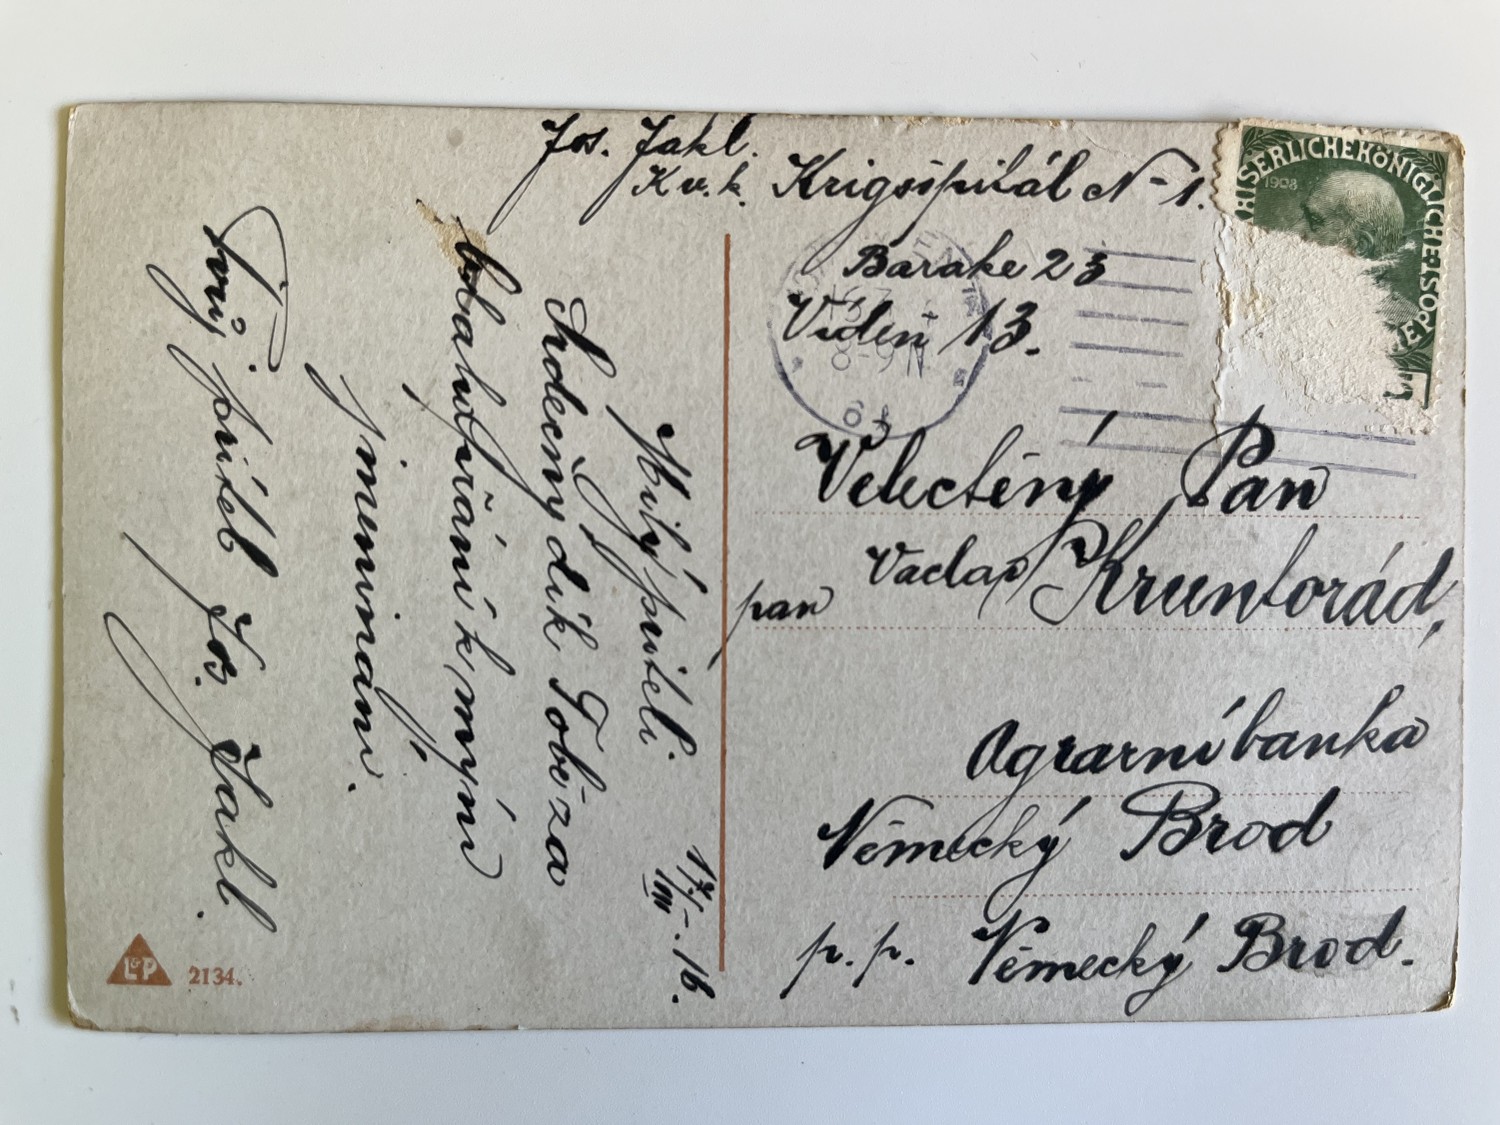 Jos. Jakl.
K u. k. Krigsšpitál N-1.
Barake 23
Videň 13.
Velectěný Pan
pan Vaclav Kruntorád,
Agrarní banka
Německý Brod
p. p. Německý Brod.
Milý příteli.
Srdečný dík Tobě za
blahopřání k mým
jmeninám.
Tvůj přítel Jos. Jakl.
17/ -.16.
KAISERLICHE KÖNIGLICHE ÖSTERR
1908
8-9 N
L&P 2134.